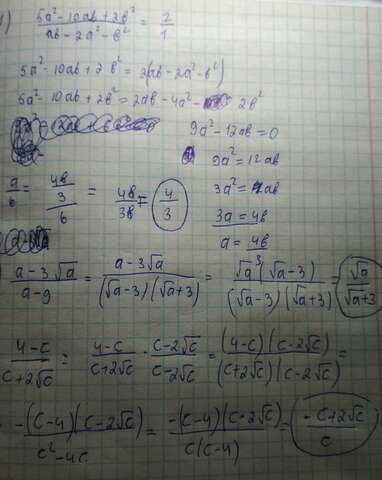 1) (5a² - 10ab + 2b²)/(ab - 2a² - b²) = 2/1
5a² - 10ab + 2b² = 2(ab - 2a² - b²)
5a² - 10ab + 2b² = 2ab - 4a² - 2b²
9a² - 12ab = 0
9a² = 12ab
3a² = 4ab
3a = 4b
a = 4b/3
a/b = (4b/3)/b = 4b/3b = 4/3
(a - 3√a)/(a - 9) = (a - 3√a)/((√a - 3)(√a + 3)) = (√a (√a - 3))/((√a - 3)(√a + 3)) = √a/(√a + 3)
(4 - c)/(c + 2√c) = (4 - c)/(c + 2√c) · (c - 2√c)/(c - 2√c) = ((4 - c)(c - 2√c))/((c + 2√c)(c - 2√c)) =
= (-(c - 4)(c - 2√c))/(c² - 4c) = (-(c - 4)(c - 2√c))/(c(c - 4)) = (-c + 2√c)/c